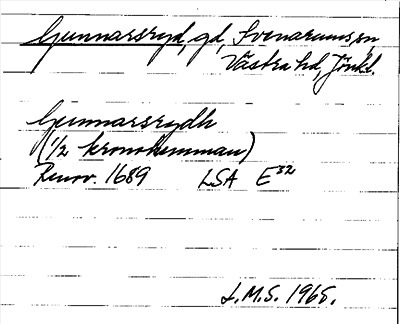 Gunnarsryd, gd, Svenarums sn,
Västra hd, Jönk.l.
Gunnarsrydh
(1/2 kronohemman)
Renov. 1689 LSA E32
L.M.S. 1965.